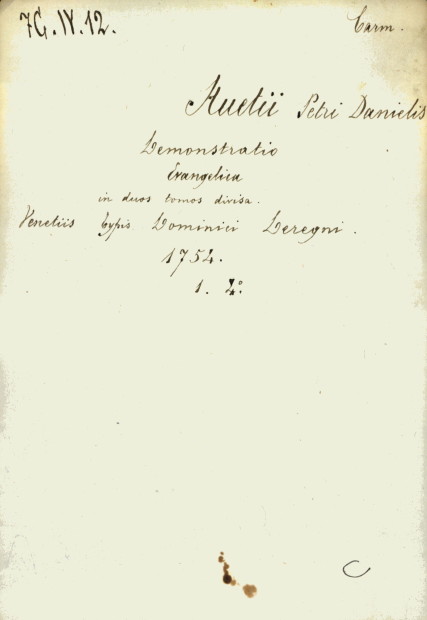 7G.IV.12.
Carm.
Huetii Petri Danielis
Demonstratio
Evangelica
in duos tomos divisa.
Venetiis typis Dominici Deregni.
1754.
1. 4°.
C